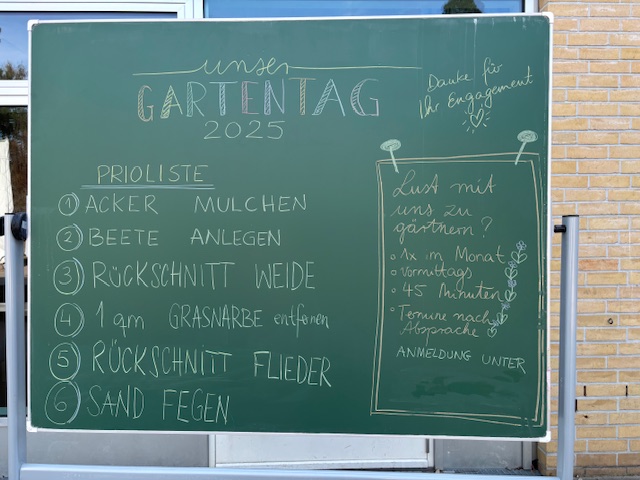 unser
GARTENTAG
2025
Danke für
Ihr Engagement
PRIOLISTE
1 ACKER MULCHEN
2 BEETE ANLEGEN
3 RÜCKSCHNITT WEIDE
4 1 qm GRASNARBE entfernen
5 RÜCKSCHNITT FLIEDER
6 SAND FEGEN
Lust mit
uns zu
gärtnern?
• 1x im Monat
• Vormittags
• 45 Minuten
• Termine nach
Absprache
ANMELDUNG UNTER